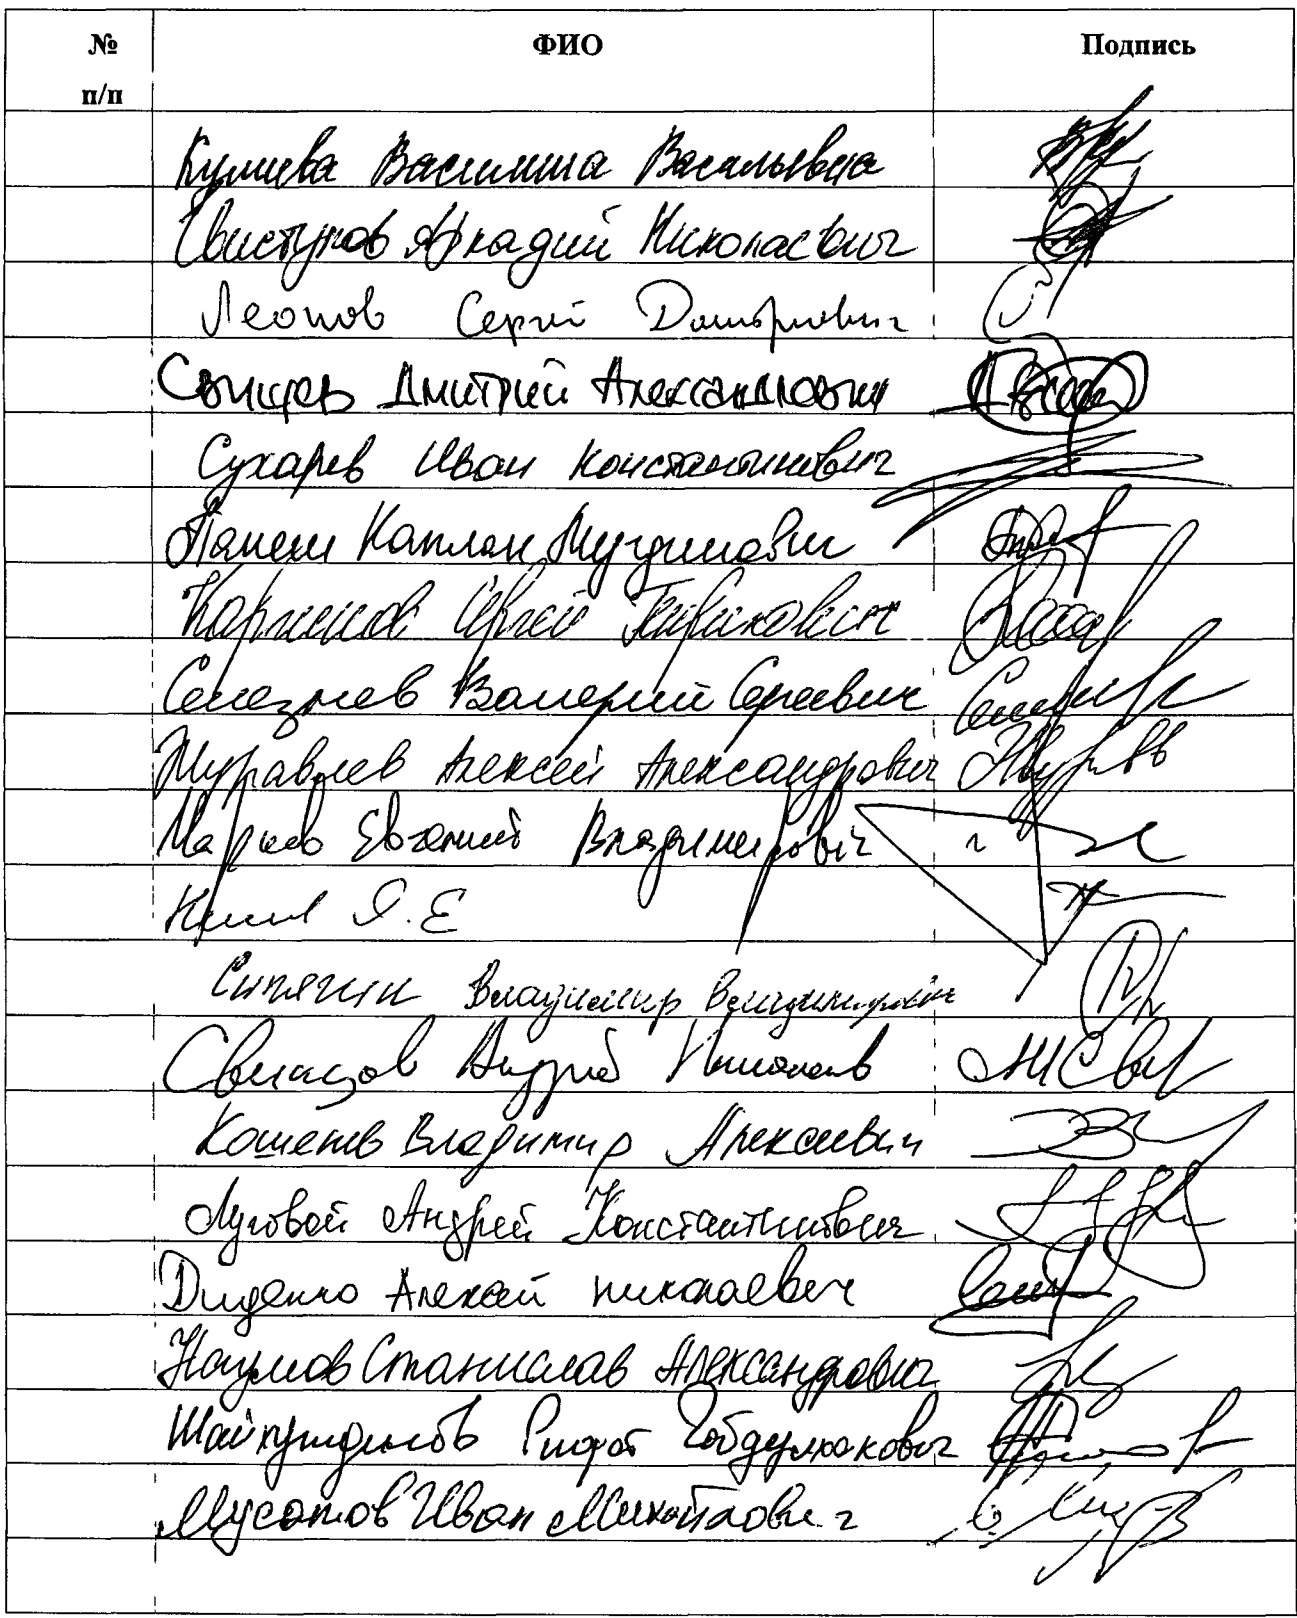 № ФИО Подпись
п/п
Кулиева Василина Васильевна
Свистунов Аркадий Николаевич
Леонов Сергей Дмитриевич
Свищев Дмитрий Александрович
Сухарев Иван Константинович
Панеш Каплан Мугдинович
Каргинов Сергей Генрихович
Селезнев Валерий Сергеевич
Журавлев Алексей Александрович
Марков Евгений Владимирович
Нилов Я.Е
Сипягин Владимир Владимирович
Свинцов Андрей Николаев
Кошелев Владимир Алексеевич
Луговой Андрей Константинович
Диденко Алексей николаевич
Наумов Станислав Александрович
Шайхутдинов Рифат Габдулхакович
Мусатов Иван Михайлович